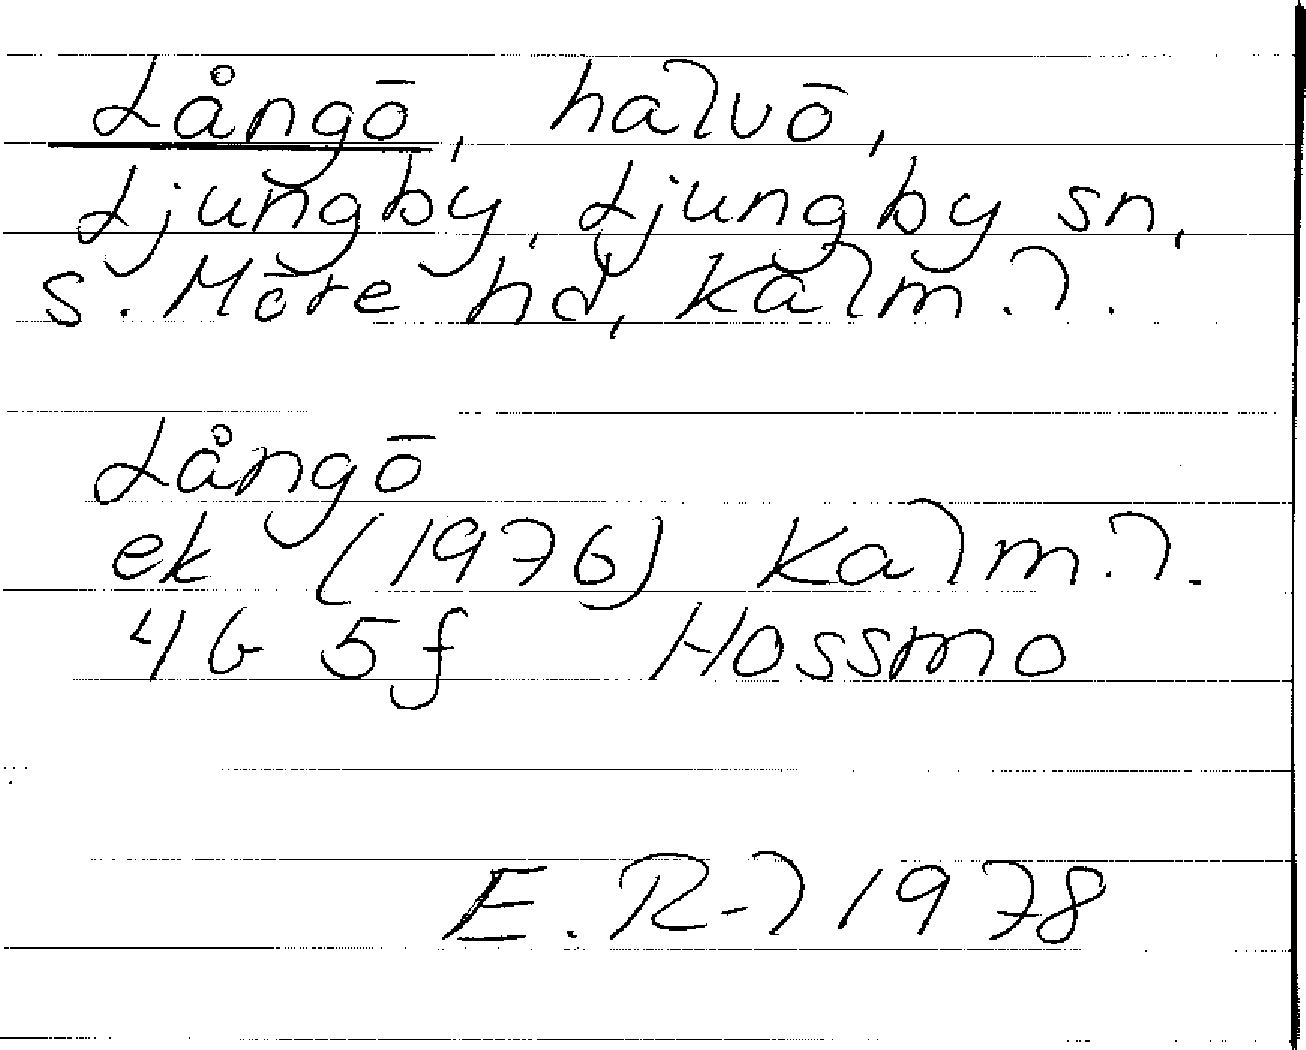 Långö, halvö,
Ljungby, Ljungby sn,
S. Möre hd, Kalm. l.
Långö
ek (1976) Kalm. l.
4G 5f Hossmo
E. R-l 1978